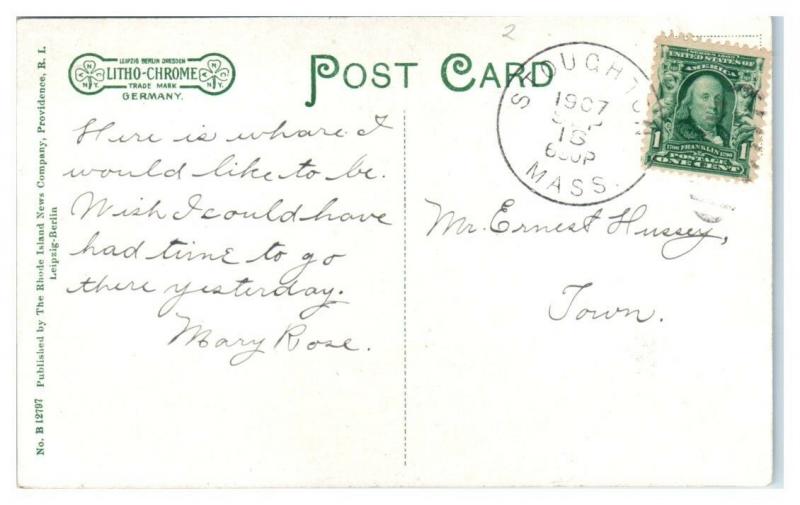 2
LEIPZIG BERLIN DRESDEN
LITHO-CHROME
TRADE MARK
GERMANY.
POST CARD
STOUGHTON
1907
SEP
16
630P
MASS.
UNITED STATES OF
AMERICA
1
1
1706 FRANKLIN 1790
POSTAGE
ONE CENT
Here is whare I
would like to be.
Wish I could have
had time to go
there yesterday.
Mary Rose.
Mr. Ernest Hussey,
Town.
No. B 12797 Published by The Rhode Island News Company, Providence, R. I.
Leipzig-Berlin